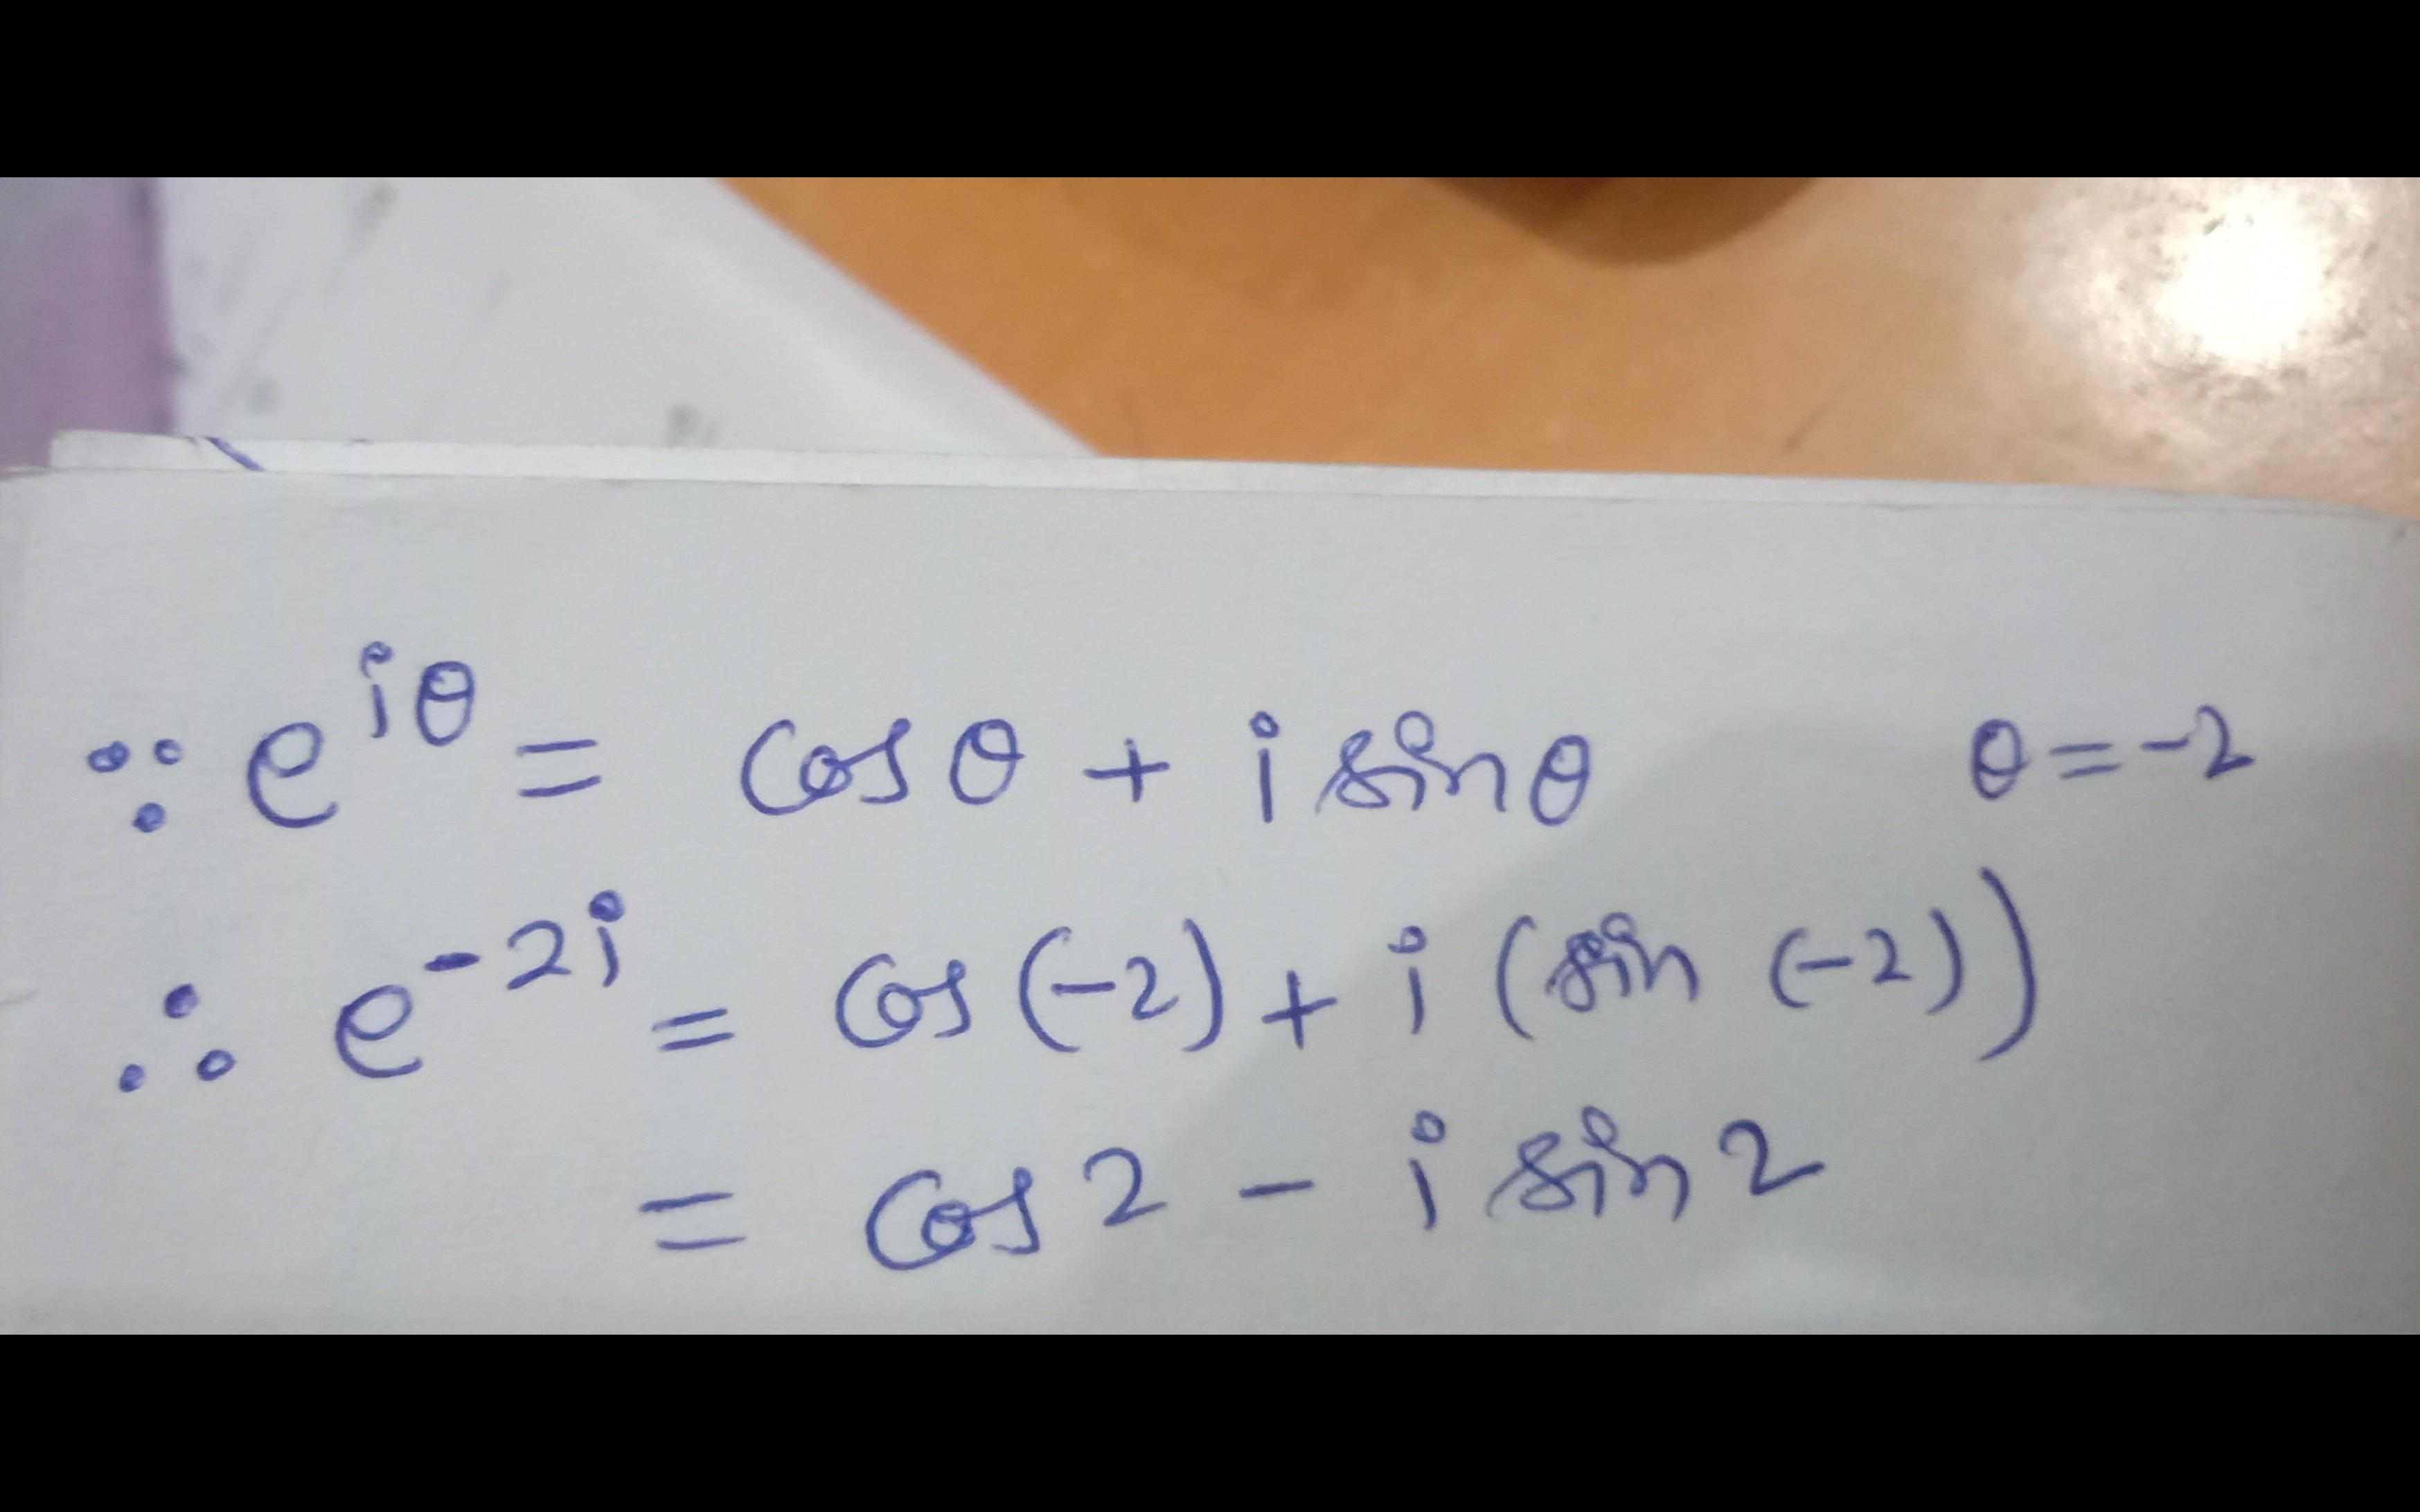 ∵ e^{iθ} = cos θ + i sin θ θ = -2
∴ e^{-2i} = cos (-2) + i (sin (-2))
= cos 2 - i sin 2